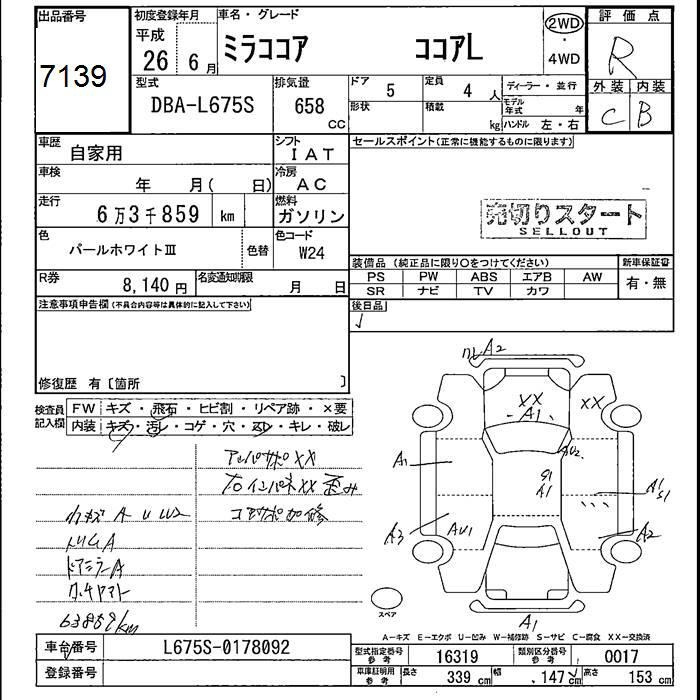 出品番号 初度登録年月 車名・グレード 評価点
7139 平成 26年6月 ミラココア ココアL 2WD・4WD R
型式 排気量 ドア 5 定員 4人 ディーラー・並行 外装 内装
DBA-L675S 658 CC 形状 積載 kg モデル年式 年 ハンドル 左・右 C B
車歴 自家用 シフト IAT セールスポイント(正常に機能するものに限ります)
車検 年 月( 日) 冷房 AC
走行 6万3千859 km 燃料 ガソリン
売切りスタート
SELLOUT
色 パールホワイトⅢ 色替 色コード W24
装備品(純正品に限り○をつけてください) 新車保証書
PS PW ABS エアB AW 有・無
SR ナビ TV カワ
R券 8,140円 名変通知期限 月 日 後日品
注意事項申告欄(不具合内容等は具体的に記入して下さい)
修復歴 有〔箇所 〕
検査員記入欄 FW キズ・飛石・ヒビ割・リペア跡・×要
内装 キズ・汚レ・コゲ・穴・スレ・キレ・破レ
アッパサポXX
右インパネXX 歪み
コアサポ加修
カキズ A U W2
トリムA
ドアミラーA
63859km
A2
XX
A1
XX
AU2
S1
A1
A1
A1
S1
A3
AU1
A2
A1
スペア
A-キズ E-エクボ U-凹み W-補修跡 S-サビ C-腐食 XX-交換済
車台番号 L675S-0178092 型式指定番号 参考 16319 類別区分番号 参考 0017
登録番号 車庫証明用 参考 長さ 339 cm 幅 147 cm 高さ 153 cm